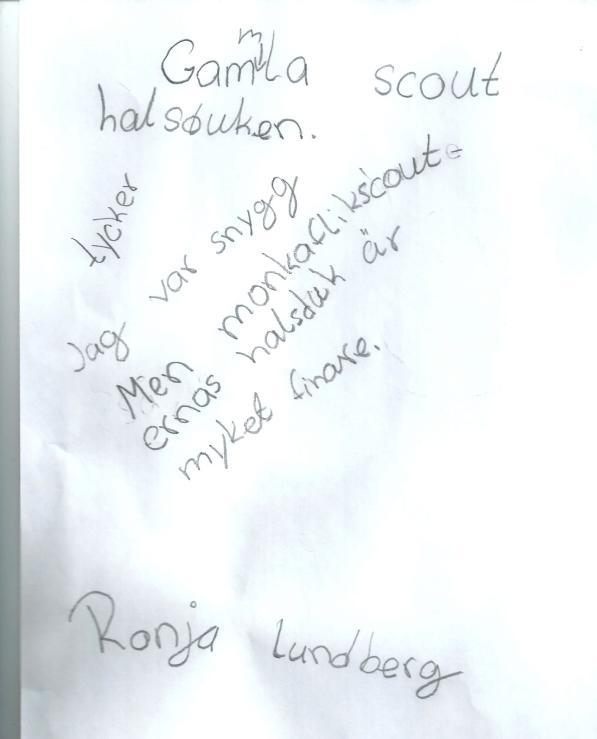 Gamla scout
halsduken.
tycker
Jag var snygg
Men monkaflikscout-
ernas halsduk är
myket finare.
Ronja Lundberg